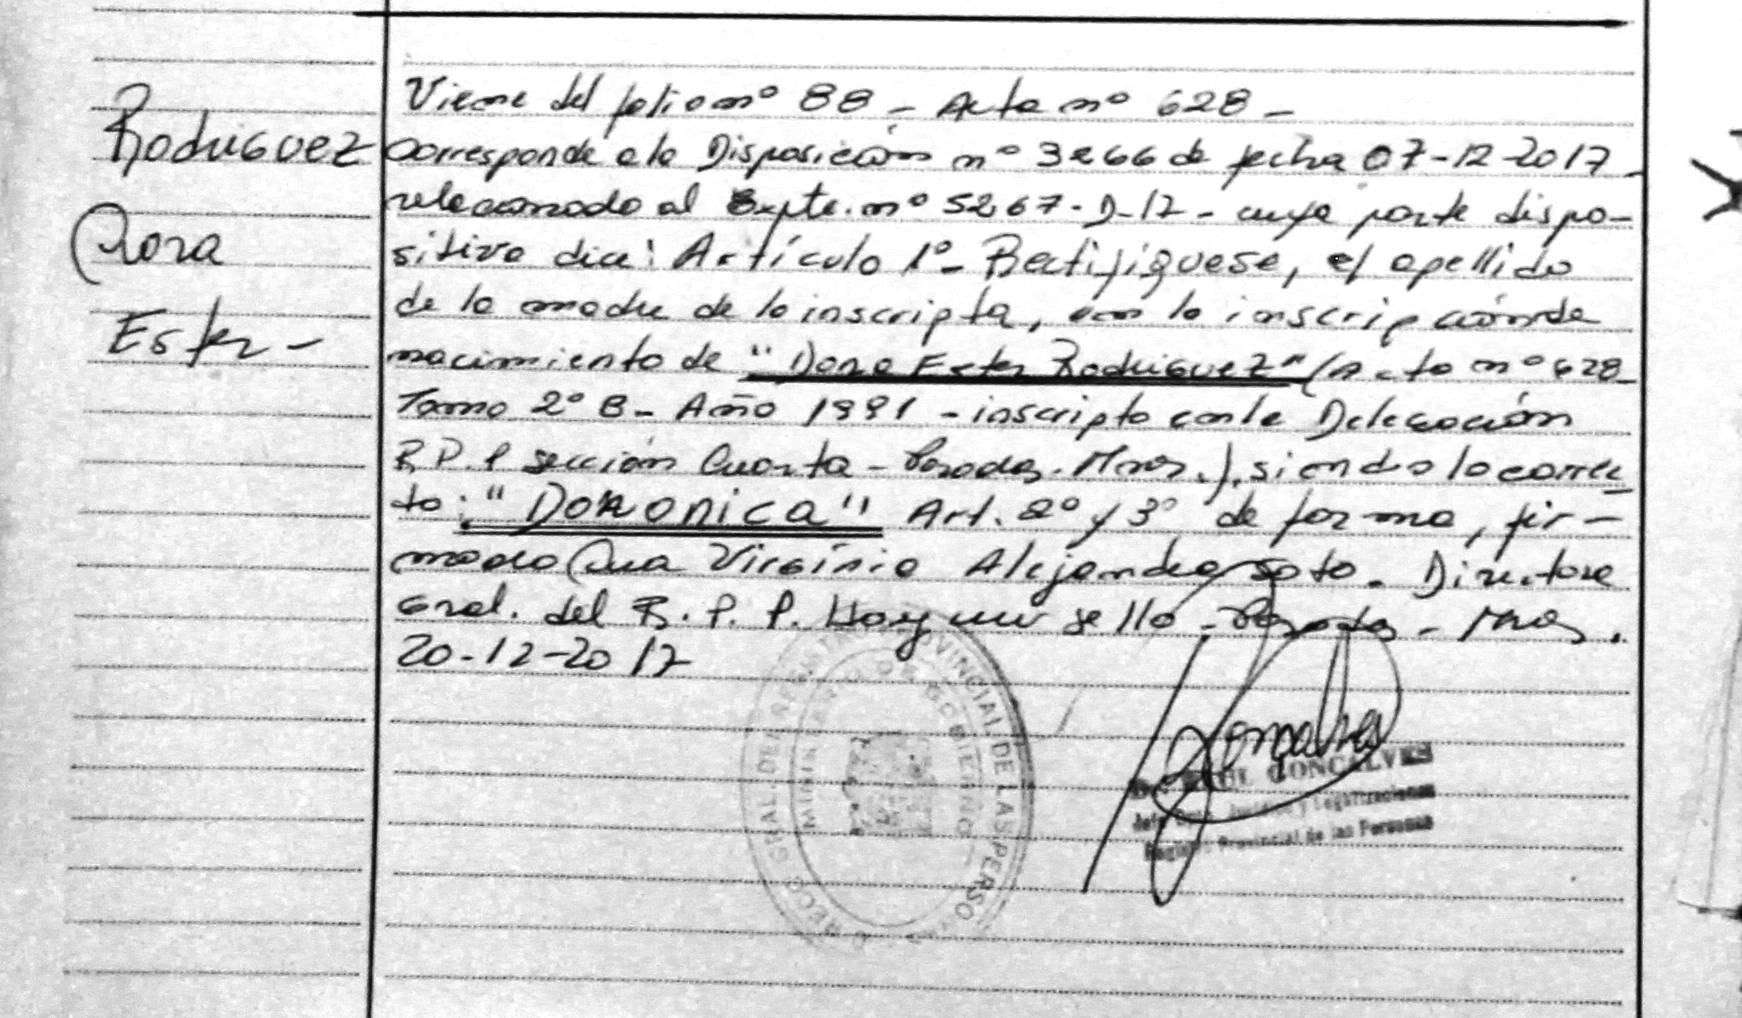 Rodriguez
Dora
Ester -
Viene del folio nº 88 - Acta nº 628 -
Corresponde a la Disposición nº 3266 de fecha 07-12-2017
relacionado al Expte. nº 5267-D-17 - cuya parte dispo-
sitiva dice: Artículo 1º - Rectifiquese, el apellido
de la madre de la inscripta, en la inscripción de
nacimiento de "Dora Ester Rodriguez" (Acta nº 628
Tomo 2º B - Año 1991 - inscripta en la Delegación
R.P.P sección Cuarta - Posadas. Mnes.), siendo lo correc-
to: "DORONICA" Art. 2º y 3º de forma, fir-
mado Dra Virginia Alejandra Soto. Directora
Gral. del R.P.P. Hay un sello - Posadas - Mnes.
20-12-2017
PROVINCIAL DE LAS PERSONAS
MINISTERIO DE GOBIERNO
GONCALVES
y Legalizaciones
Registro Provincial de las Personas